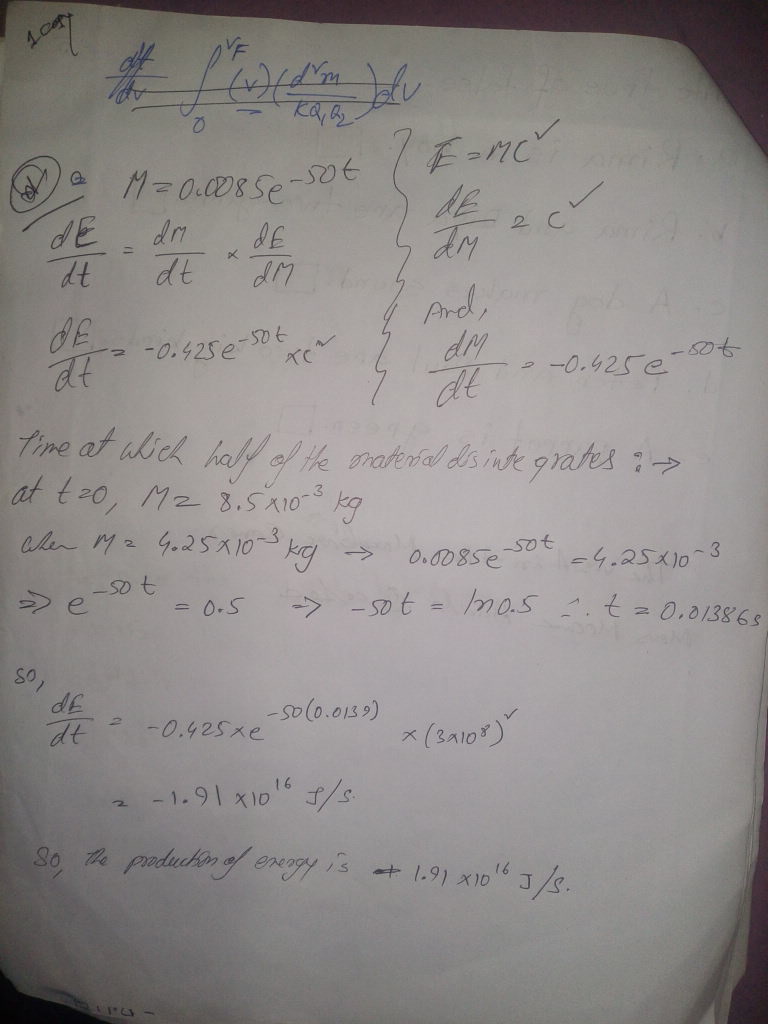 dt/dv ∫₀^vF (v) (d²m / KQ₁Q₂) dv
M = 0.0085e^-50t
E = MC²
dE/dt = dM/dt × dE/dM
dE/dM = C²
And,
dE/dt = -0.425e^-50t × C²
dM/dt = -0.425e^-50t
Time at which half of the material disintegrates :→
at t=0, M = 8.5×10^-3 kg
when M = 4.25×10^-3 kg → 0.0085e^-50t = 4.25×10^-3
⇒ e^-50t = 0.5 ⇒ -50t = ln0.5 ∴ t = 0.01386s
so,
dE/dt = -0.425×e^-50(0.0139) × (3×10^8)²
= -1.91×10^16 J/s.
So, the production of energy is 1.91×10^16 J/s.